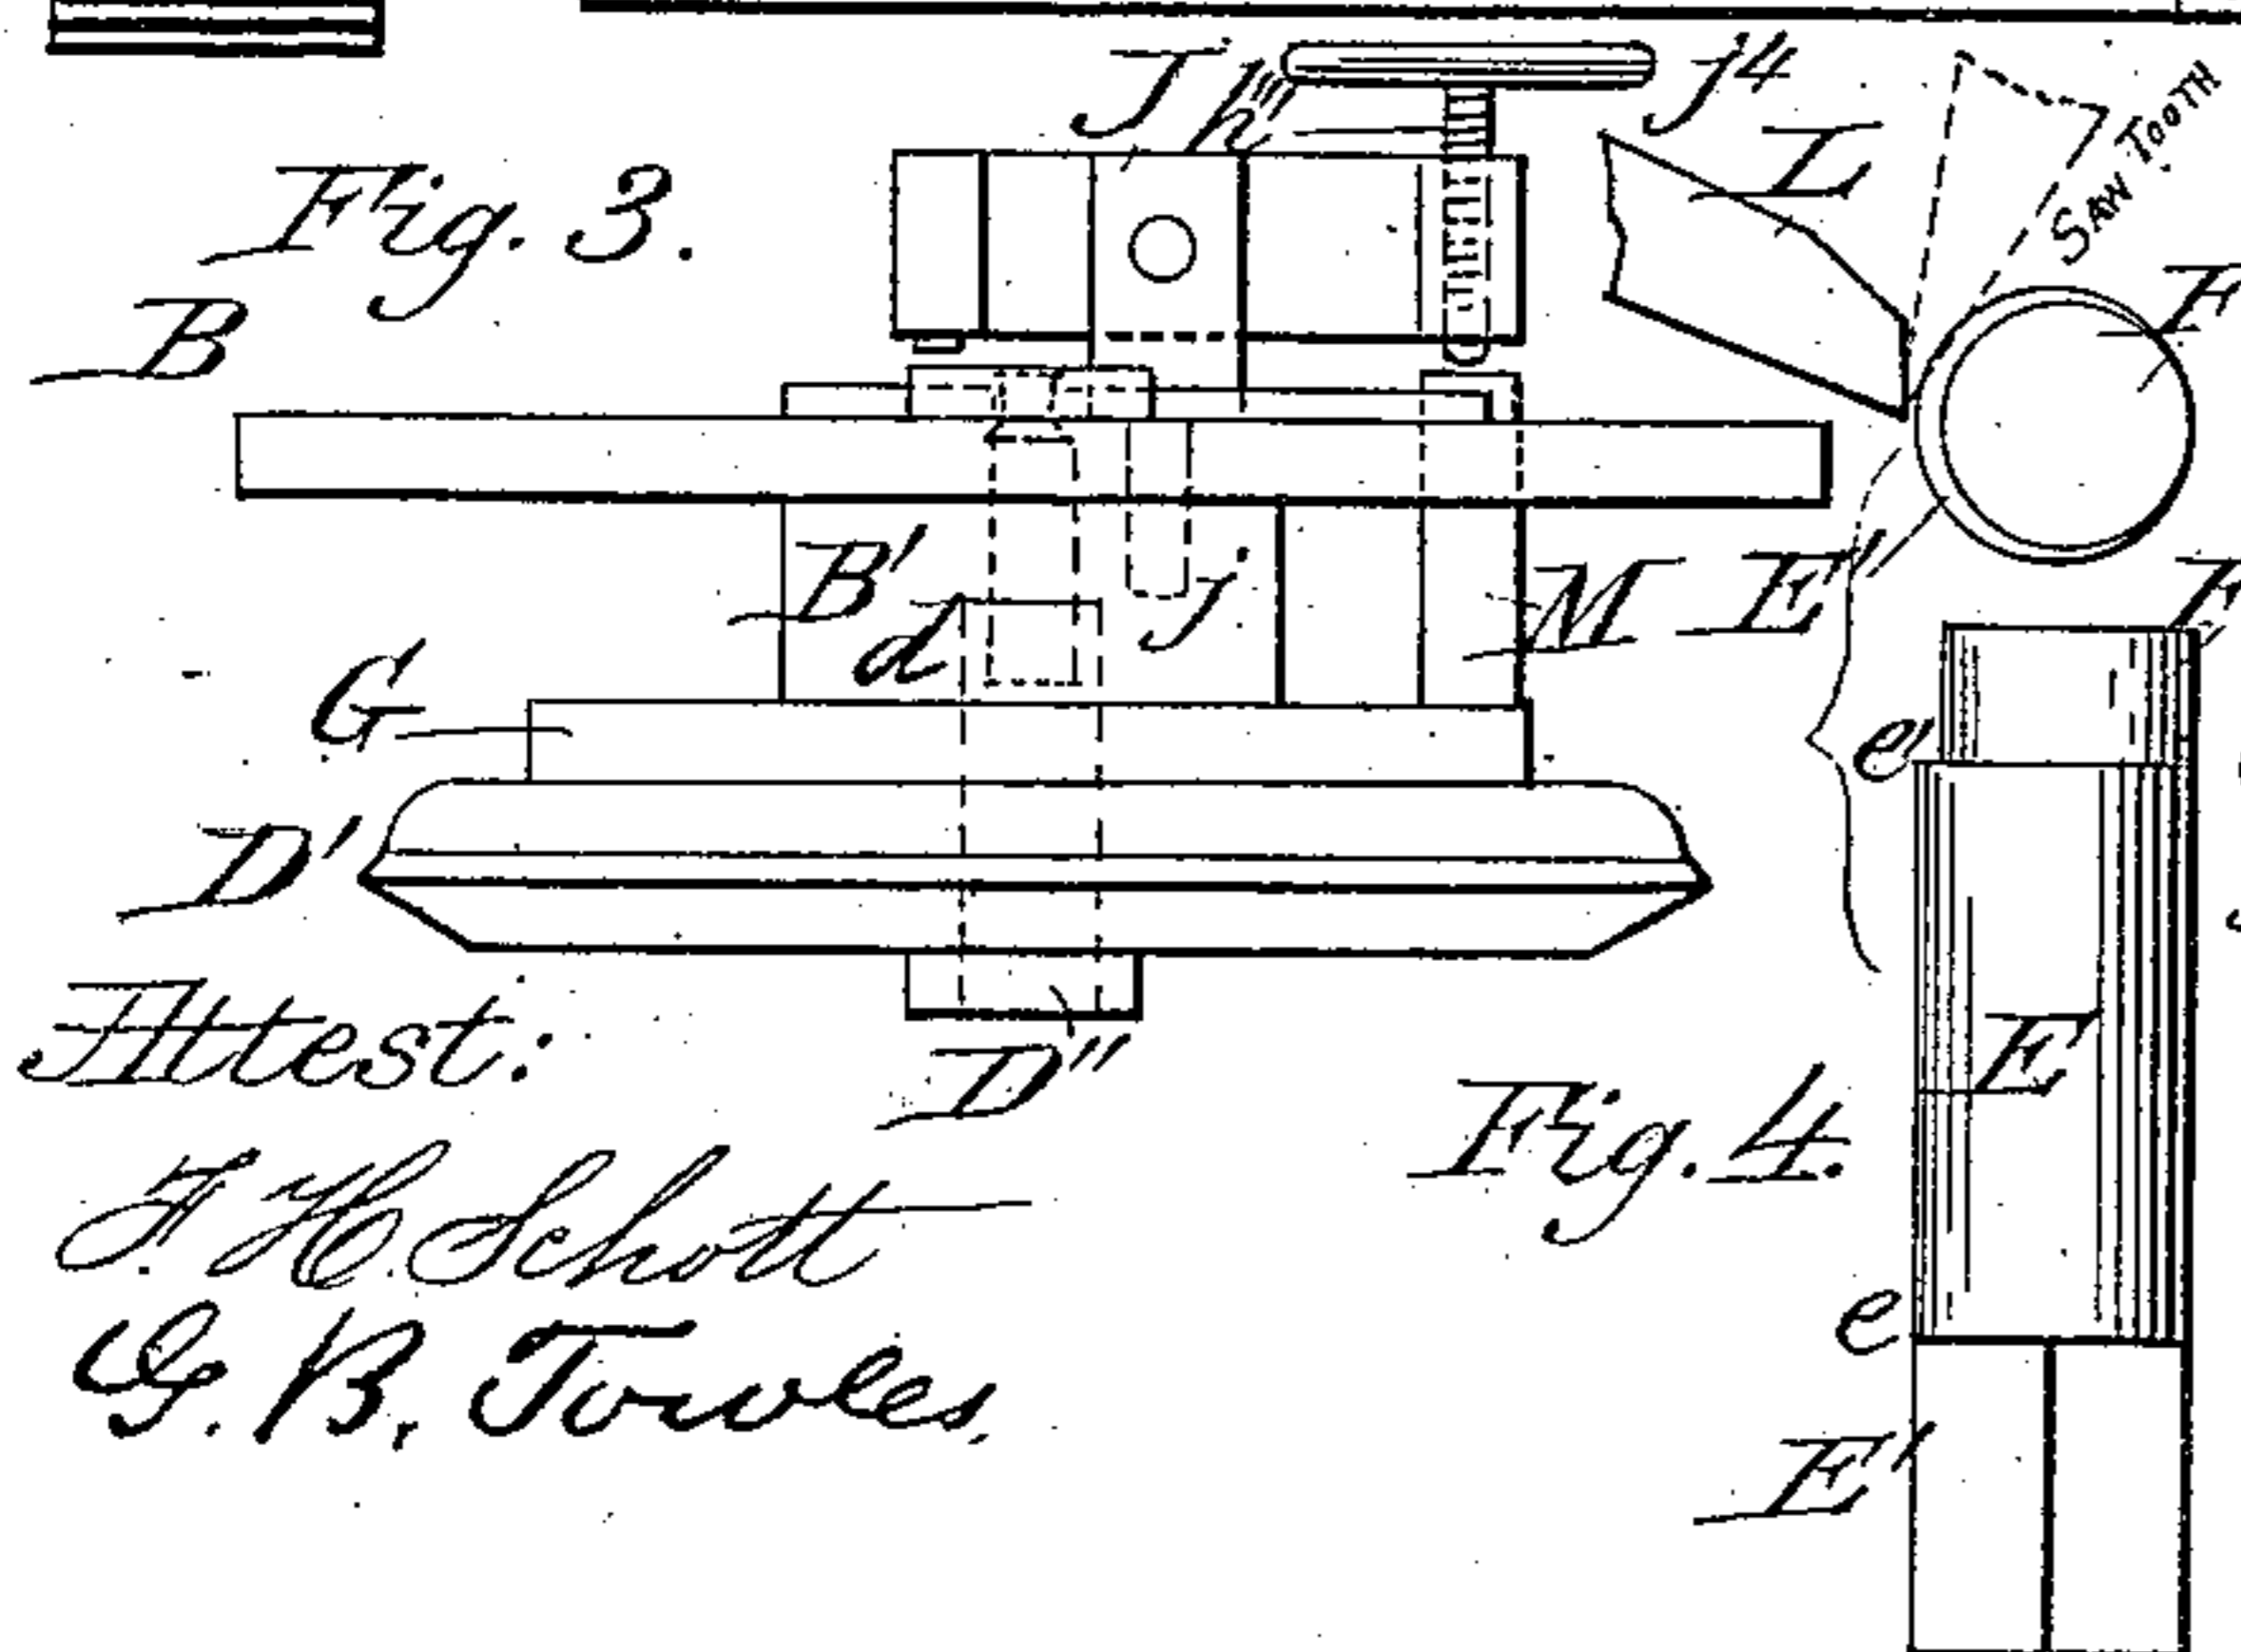 J h''' j4
L
SAW TOOTH
Fig. 3.
B
B' d j M E''
G
e'
D'
E
Attest:
D''
Fig. 4.
F. H. Schott
e
G. B. Towles,
E'